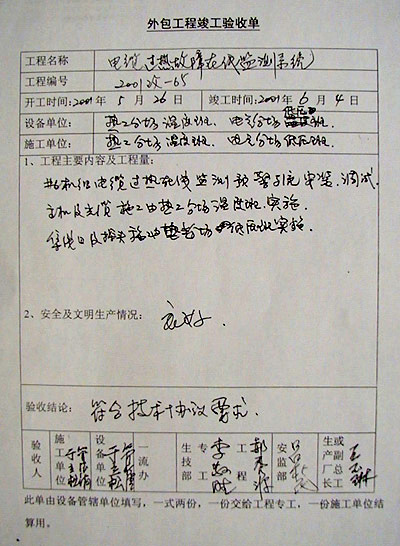 外包工程竣工验收单
工程名称 电缆过热故障在线监测系统
工程编号 2001改-65
开工时间:2001年 5月 26日 竣工时间:2001年 6月 4日
设备单位: 热工分场温度班. 电气分场 班.
施工单位: 热工分场温度班. 电气分场 班.
1、工程主要内容及工程量:
机组电缆过热在线监测预警系统安装、调试.
主机及光缆施工由热工分场温度班实施.
及探头施工由 分场 班实施.
2、安全及文明生产情况:
良好.
验收结论: 符合技术协议要求.
验收人 施工单位 设备单位 一流办 生技部 专工 李 工程 郭 安监部 吕 生产副厂长 或总工 王
此单由设备管辖单位填写，一式两份，一份交给工程专工，一份施工单位结
算用。